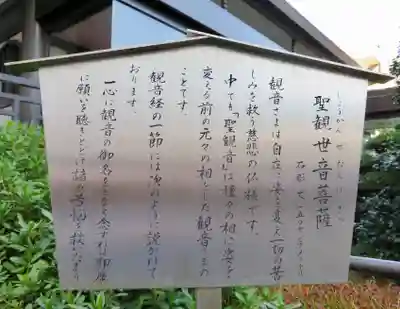 しょうかんぜおんぼさつ
聖観世音菩薩
観音さまは自在に姿を変え一切の苦
しみを救う慈悲の仏様です。
中でも「聖観音」は種々の相に姿を
変える前の元々の相をした観音さまの
ことです。
観音経の一節には次のように説かれて
おります。
一心に観音の御名をとなえ念ずれば即座
に願いを聴きとどけ諸の苦悩を救いたまう